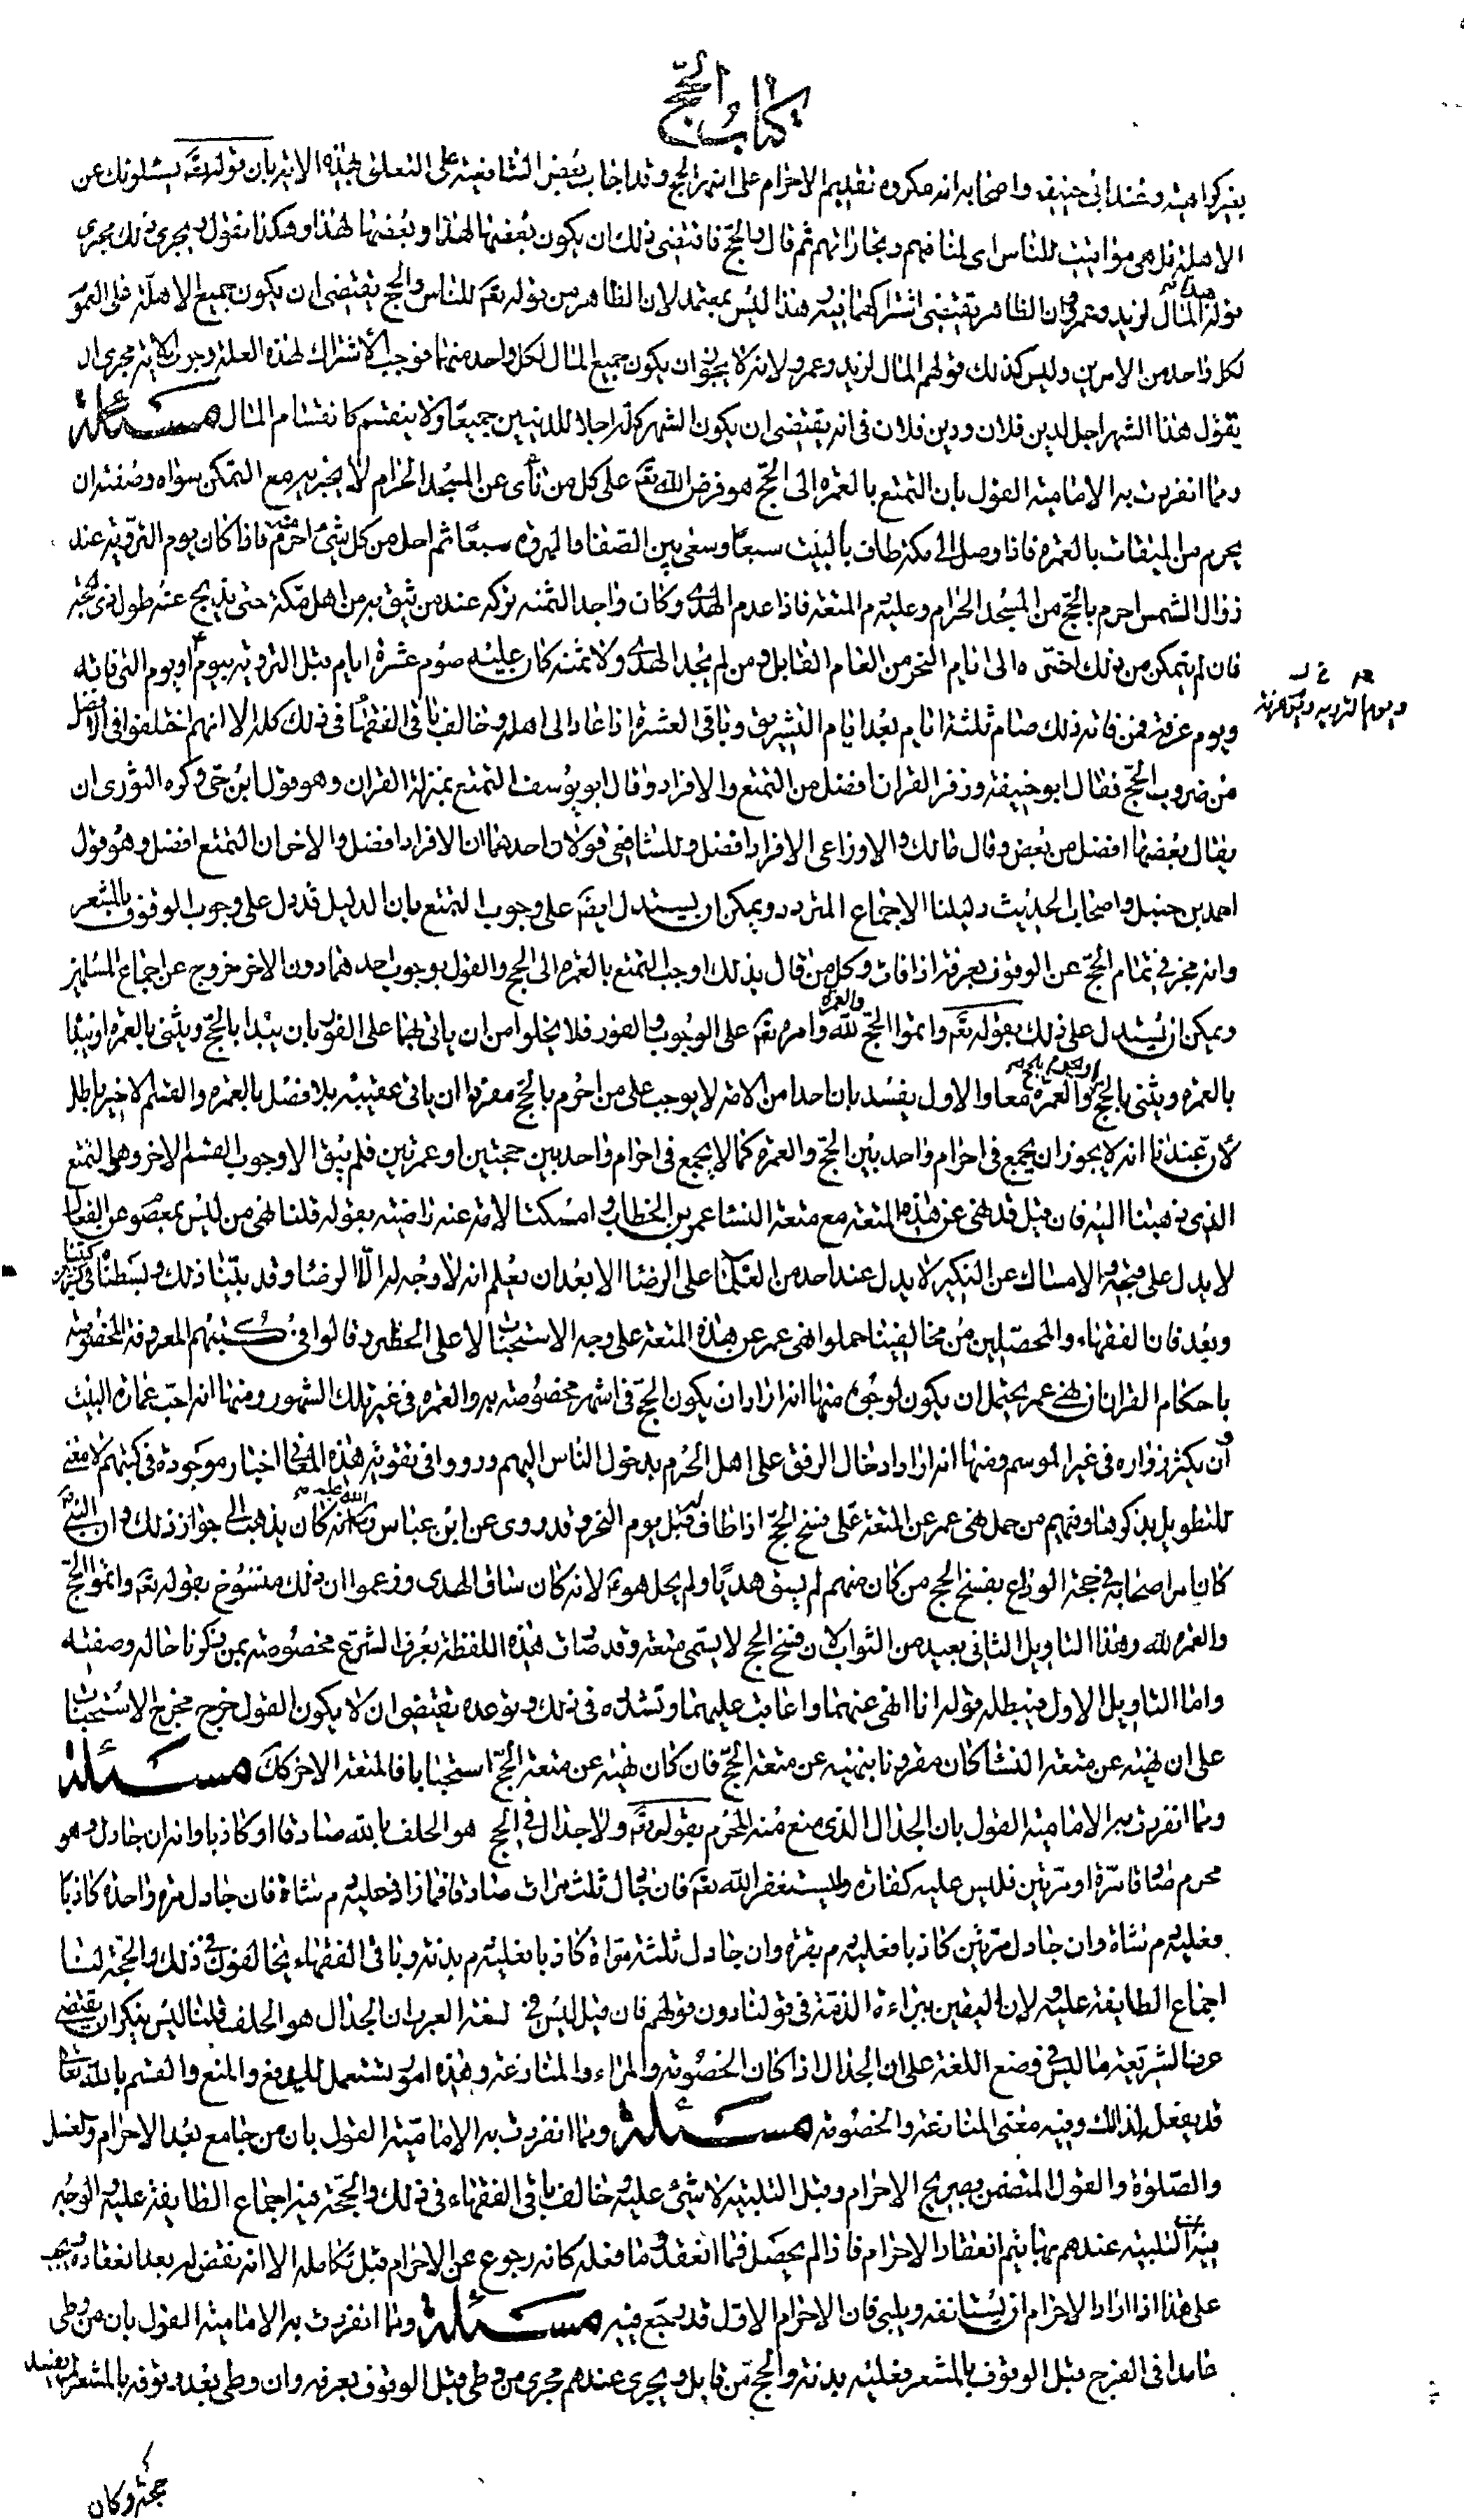 كتاب الحج
بغير كراهية وعند ابي حنيفة واصحابه انه مكروه تقديم الاحرام على اشهر الحج وقد اجاب بعض الشافعية على التعلق بهذه الاية بان قوله تعالى يسئلونك عن
الاهلة قل هي مواقيت للناس اى لمنافعهم وتجاراتهم ثم قال والحج فاقتضى ذلك ان يكون بعضها لهذا وبعضها لهذا وهكذا نقول ويجرى ذلك مجرى
قوله المال لزيد وعمرو ان الظاهر يقتضى اشتراكهما فيه هذا ليس بمعتمد لان الظاهر من قوله تعم للناس والحج يقتضى ان يكون جميع الاهلة على العموم
لكل واحد من الامرين وليس كذلك قولهم المال لزيد وعمرو لانه لا يجوز ان يكون جميع المال لكل واحد منهما فوجب الاشتراك لهذه العلة وجرت الاية مجرى ان
يقول هذا الشهر اجل لدين فلان ودين فلان فى انه يقتضى ان يكون الشهر كله اجلا للدينين جميعا ولا ينقسم كانقسام المال مسئلة
ومما انفردت به الامامية القول بان التمتع بالعمره الى الحج هو فرض الله تعم على كل من نأى عن المسجد الحرام لا يجزيه مع التمكن سواه وصفته ان
يحرم من الميقات بالعمره فاذا وصل الى مكة طاف بالبيت سبعا وسعى بين الصفا والمروه سبعا ثم احل من كل شئ احرم منه فاذا كان يوم التروية عند
زوال الشمس احرم بالحج من المسجد الحرام وعليه دم المتعة فاذا عدم الهدى وكان واجدا لثمنه تركه عند من يثق به من اهل مكة حتى يذبح عنه طول ذى الحجة
فان لم يتمكن من ذلك اخره الى ايام النحر من العام القابل ومن لم يجد الهدى ولا ثمنه كان عليه صوم عشرة ايام قبل التروية بيوم ويوم التروية
ويوم التروية ويوم عرفة
ويوم عرفة فمن فاته ذلك صام ثلثة ايام بعد ايام التشريق وباقى العشرة اذا عاد الى اهله وخالف باقى الفقهاء فى ذلك كله الا انهم اختلفوا فى الافضل
من ضروب الحج فقال ابو حنيفة وزفر القران افضل من التمتع والافراد وقال ابو يوسف التمتع بمنزلة القران وهو قول ابن حى وكره الثورى ان
يقال بعضها افضل من بعض وقال مالك والاوزاعى الافراد افضل وللشافعى قولان احدهما ان الافراد افضل والاخر ان التمتع افضل وهو قول
احمد بن حنبل واصحاب الحديث دليلنا الاجماع المتردد ويمكن ان يستدل ايضا على وجوب التمتع بان الدليل قد دل على وجوب الوقوف بالمشعر
وانه مجز فى تمام الحج عن الوقوف بعرفة اذا فات وكل من قال بذلك اوجب التمتع بالعمره الى الحج والقول بوجوب احدهما دون الاخر خروج عن اجماع المسلمين
ويمكن ان يستدل على ذلك بقوله تعم واتموا الحج والعمرة لله وامره تعم على الوجوب والفور فلا يخلوا من ان ياتى بهما على الفور بان يبدا بالحج ويثنى بالعمره او يبدا
بالعمره ويثنى بالحج او يحرم بالحج والعمرة معا والاول يفسد بان احدا من الامة لا يوجب على من احرم بالحج مفردا ان ياتى عقيبه بلا فصل بالعمره والقسم الاخير باطل
لأن عندنا انه لا يجوز ان يجمع فى احرام واحد بين الحج والعمره كما لا يجمع فى احرام واحد بين حجتين او عمرتين فلم يبق الا وجوب القسم الاخر وهو التمتع
الذى ذهبنا اليه فان قيل قد نهى عن هذه المتعة مع متعة النساء عمر بن الخطاب وامسكت الامة عنه راضية بقوله قلنا نهى من ليس بمعصوم عن الفعل
لا يدل على قبحه والامساك عن النكير لا يدل عند احد من العلماء على الرضا الا بعد ان يعلم انه لا وجه له الا الرضا وقد بينا ذلك وبسطناه فى كثير من كتبنا
وبعد فان الفقهاء والمحصلين من مخالفينا حملوا نهى عمر عن هذه المتعة على وجه الاستحباب لا على الحظر وقالوا فى كتبهم المعروفة المخصوصة
باحكام القران ان نهى عمر يحتمل ان يكون لوجوه منها انه اراد ان يكون الحج فى اشهر مخصوصة به والعمره فى غير تلك الشهور ومنها انه احب عمارة البيت
وان يكثر زواره فى غير الموسم ومنها انه اراد ادخال الرفق على اهل الحرم بدخول الناس اليهم ورووا فى تقوية هذه المعانى اخبار موجودة فى كتبهم لا معنى
للتطويل بذكرها ومنهم من حمل نهى عمر عن المتعة على فسخ الحج اذا طاف له قبل يوم النحر وقد روى عن ابن عباس رحمة الله عليه انه كان يذهب الى جواز ذلك وان النبى ص
كان امر اصحابه فى حجة الوداع بفسخ الحج من كان منهم لم يسق هديا ولم يحل هو ع لانه كان ساق الهدى وزعموا ان ذلك منسوخ بقوله تعم واتموا الحج
والعمره لله وهذا التاويل الثانى بعيد من الثواب لان فسخ الحج لا يسمى متعة وقد صارت هذه اللفظة بعرف الشرع مخصوصة بمن ذكرنا حاله وصفته
واما التاويل الاول فيبطله قوله انا انهى عنهما واعاقب عليهما وتشدده فى ذلك وتوعده يقتضى ان لا يكون القول خرج مخرج الاستحباب
على ان نهيه عن متعة النساء كان مقرونا بنهيه عن متعة الحج فان كان نهيه عن متعة الحج استحبابا فالمتعة الاخر كك مسئلة
ومما انفردت به الامامية القول بان الجدال الذى منع منه المحرم بقوله تعم ولا جدال فى الحج هو الحلف بالله صادقا او كاذبا وانه ان جادل وهو
محرم صادقا مرة او مرتين فليس عليه كفاره وليستغفر الله تعم فان جادل ثلث مرات صادقا فما زاد فعليه دم شاة فان جادل مره واحدة كاذبا
فعليه دم شاة وان جادل مرتين كاذبا فعليه دم بقرة وان جادل ثلثة مراة كاذبا فعليه دم بدنة وباقى الفقهاء يخالفون فى ذلك والحجة لنا
اجماع الطايفة عليه ولان اليقين ببراءة الذمة فى قولنا دون قولهم فان قيل ليس فى لغة العرب ان الجدال هو الحلف قلنا ليس ينكر ان يقتضى
عرف الشريعة ما ليس فى وضع اللغة على ان الجدال اذا كان الخصومة والمراء والمنازعة وهذه امور تستعمل للدفع والمنع والقسم بالله تعالى
قد يفعل لذالك وفيه معنى المنازعة والخصومة مسئلة ومما انفردت به الامامية القول بان من جامع بعد الاحرام والغسل
والصلوة والقول المتضمن بصريح الاحرام وقبل التلبية لا شئ عليه خالف باقى الفقهاء فى ذلك والحجة فيه اجماع الطايفة عليه والوجه
فيه ان التلبية عندهم بها يتم انعقاد الاحرام فاذا لم يحصل فما انعقد وما فعله كانه رجوع عن الاحرام قبل تكامله الا انه نقض له بعد انعقاده ويجب
على هذا اذا اراد الاحرام ان يستانفه ويلبى فان الاحرام الاول قد رجع فيه مسئلة ومما انفردت به الامامية القول بان من وطى
عامدا فى الفرج قبل الوقوف بالمشعر فعليه بدنة والحج من قابل ويجرى عندهم مجرى من وطى قبل الوقوف بعرفة وان وطى بعد وقوفه بالمشعر لم يفسد
حجه وكان